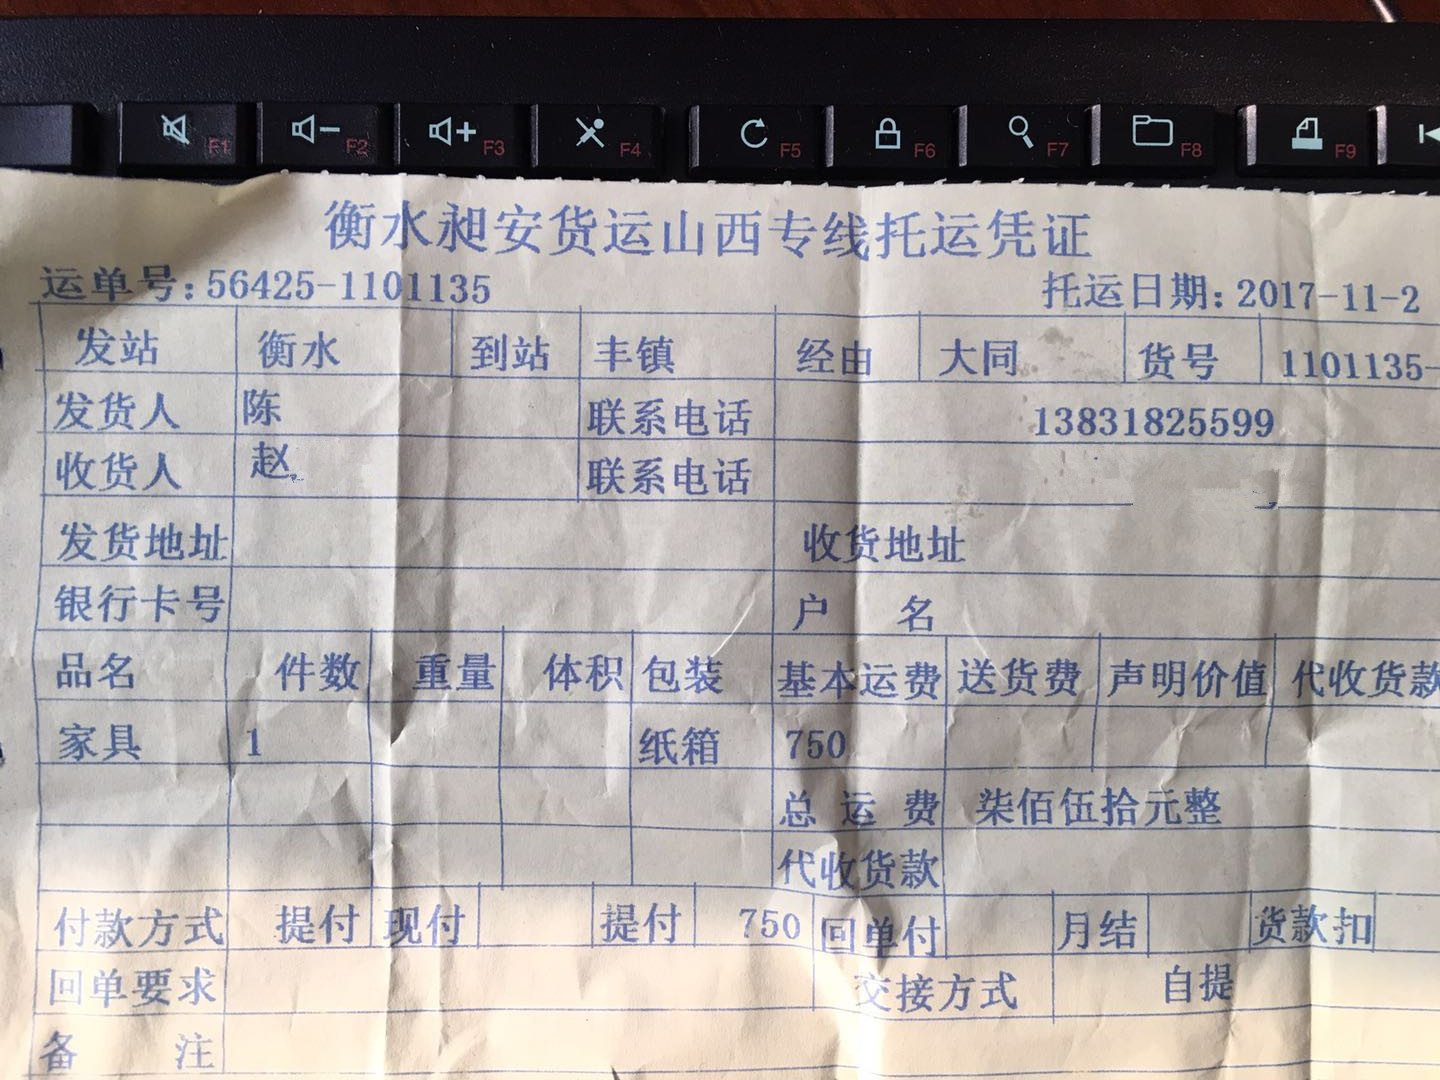 F1 F2 F3 F4 F5 F6 F7 F8 F9
衡水昶安货运山西专线托运凭证
运单号:56425-1101135 托运日期:2017-11-2
发站 衡水 到站 丰镇 经由 大同 货号 1101135-
发货人 陈 联系电话 13831825599
收货人 赵 联系电话
发货地址 收货地址
银行卡号 户 名
品名 件数 重量 体积 包装 基本运费 送货费 声明价值 代收货款
家具 1 纸箱 750
总 运 费 柒佰伍拾元整
代收货款
付款方式 提付 现付 提付 750 回单付 月结 货款扣
回单要求 交接方式 自提
备 注